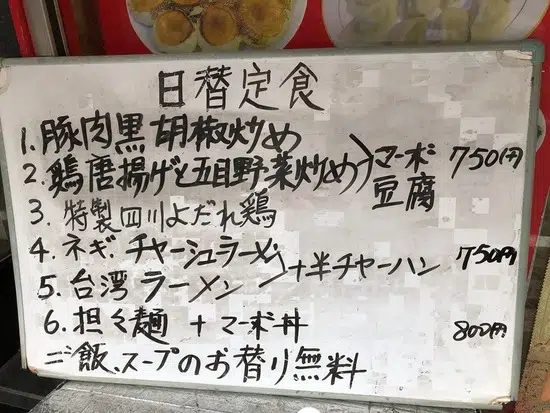 日替定食
1. 豚肉黒胡椒炒め
2. 鶏唐揚げと五目野菜炒め マーボ豆腐 750円
3. 特製四川よだれ鶏
4. ネギ. チャーシュラーメン
5. 台湾ラーメン +半チャーハン 750円
6. 担々麺 + マーボ丼 800円
ご飯、スープのお替り無料